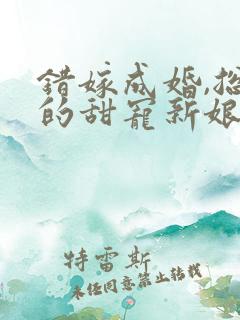 错嫁成婚,总
的甜宠新娘
特雷斯
未经同意禁止转载